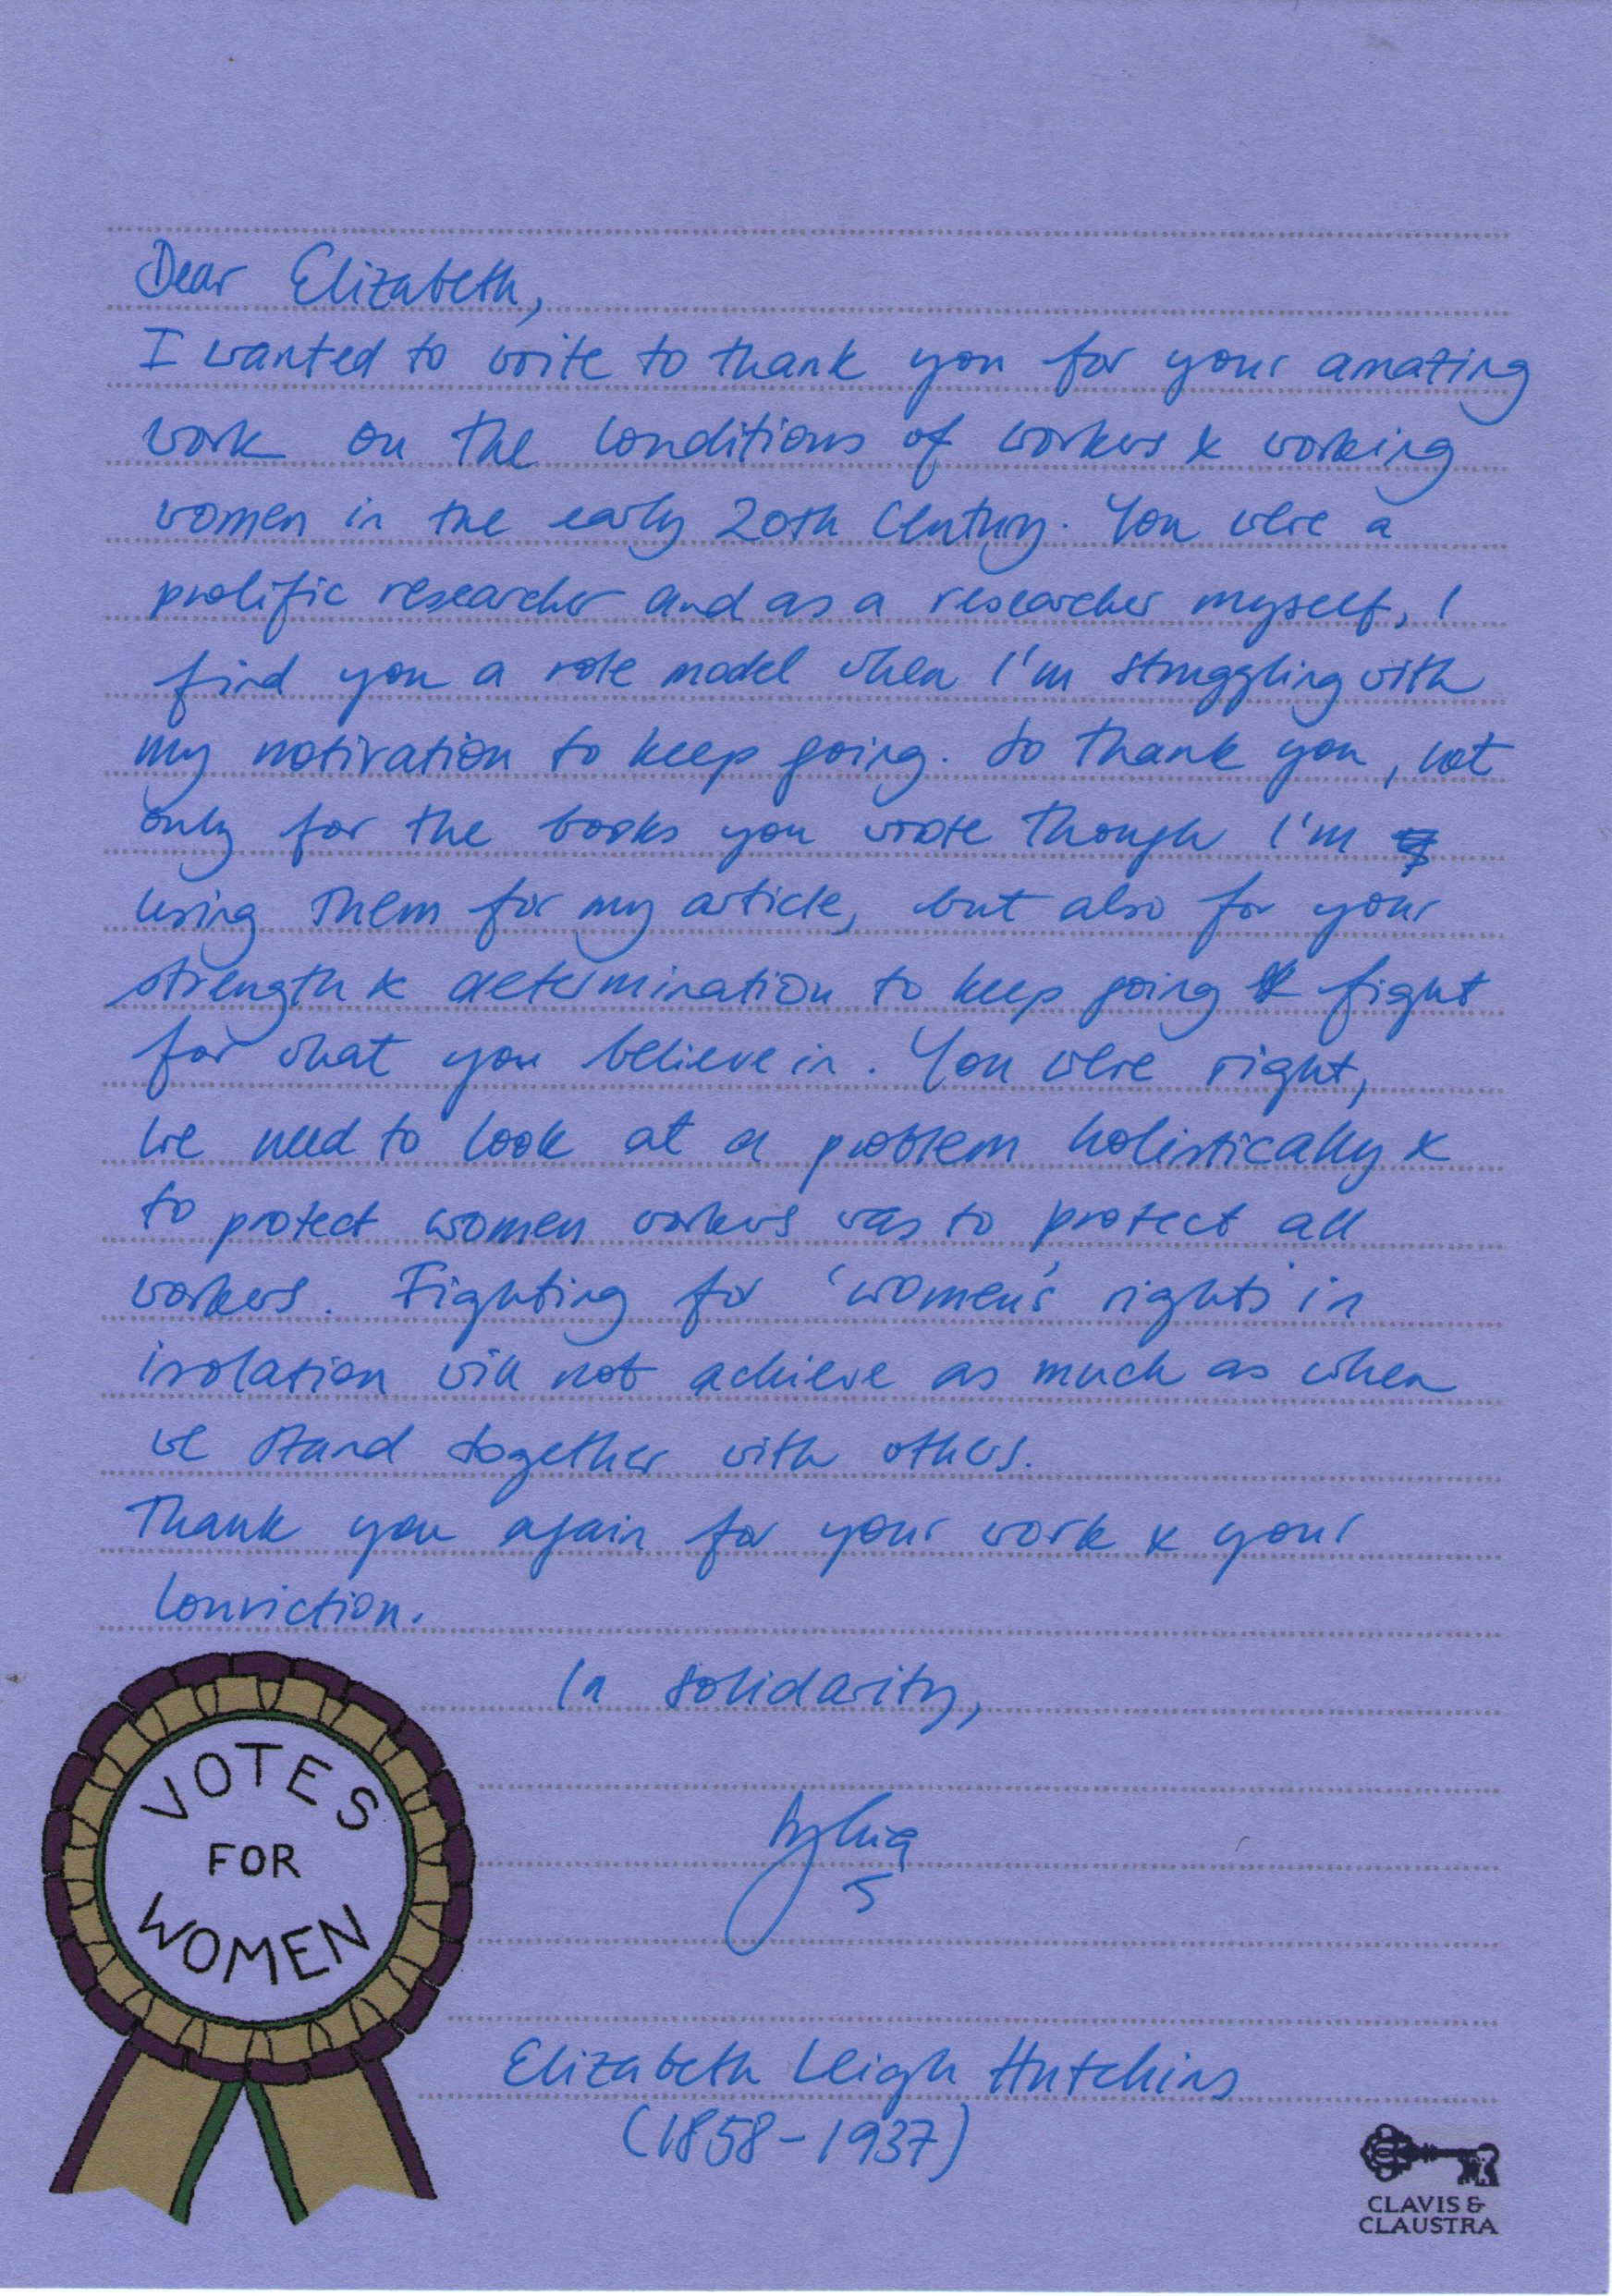 Dear Elizabeth,
I wanted to write to thank you for your amazing
work on the conditions of workers & working
women in the early 20th Century. You were a
prolific researcher and as a researcher myself, I
find you a role model when I'm struggling with
my motivation to keep going. So thank you, not
only for the books you wrote though I'm
using them for my article, but also for your
strength & determination to keep going & fight
for what you believe in. You were right,
we need to look at a problem holistically &
to protect women workers was to protect all
workers. Fighting for 'women's' rights in
isolation will not achieve as much as when
we stand together with others.
Thank you again for your work & your
conviction.
In solidarity,
VOTES
FOR
WOMEN
Elizabeth Leigh Hutchins
(1858-1937)
CLAVIS &
CLAUSTRA